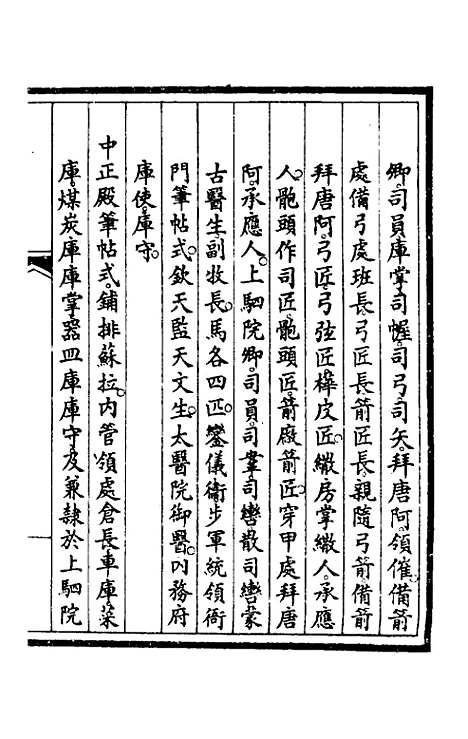 卿。司員庫掌司幄。司弓司矢。拜唐阿。領催。備箭
處備弓處班長。弓匠長箭匠長。親隨弓箭備箭
拜唐阿。弓匠。弓弦匠樺皮匠。繖房掌繖人。承應
人。骲頭作司匠。骲頭匠。箭廠箭匠。穿甲處拜唐
阿。承應人。上駟院卿。司員。司鞌司轡。散司轡。蒙
古醫生副牧長。馬各四匹。鑾儀衞。步軍統領衙
門筆帖式。欽天監天文生。太醫院御醫。內務府
庫使。庫守。
中正殿筆帖式。鋪排蘇拉。內管領處倉長車庫菜
庫。煤炭庫庫掌。器皿庫庫守。及兼隸於上駟院